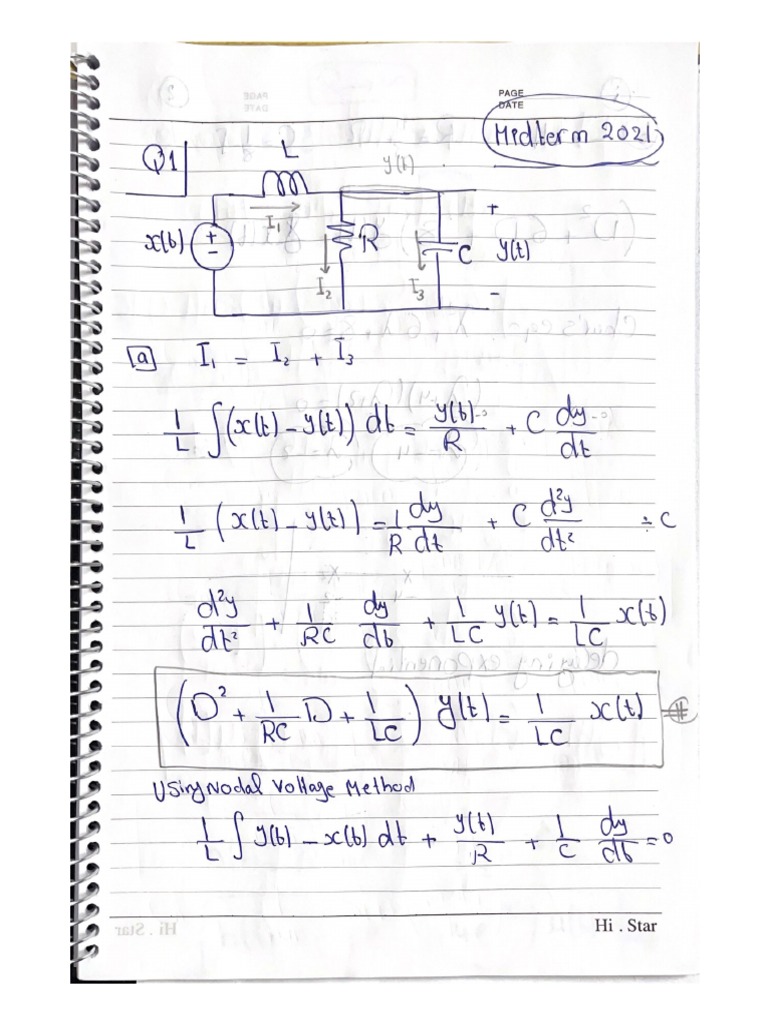 PAGE
DATE
Midterm 2021
Q1
L
y(t)
I₁
x(t)
+
-
R
C
+
y(t)
-
I₂
I₃
a I₁ = I₂ + I₃
1/L ∫(x(t) - y(t)) dt = y(t)-0/R + C dy-0/dt
1/L (x(t) - y(t)) = 1/R dy/dt + C d²y/dt² ÷ C
d²y/dt² + 1/RC dy/dt + 1/LC y(t) = 1/LC x(t)
(D² + 1/RC D + 1/LC) y(t) = 1/LC x(t)
Using Nodal Voltage Method
1/L ∫ y(t) - x(t) dt + y(t)/R + 1/C dy/dt = 0
Hi . Star